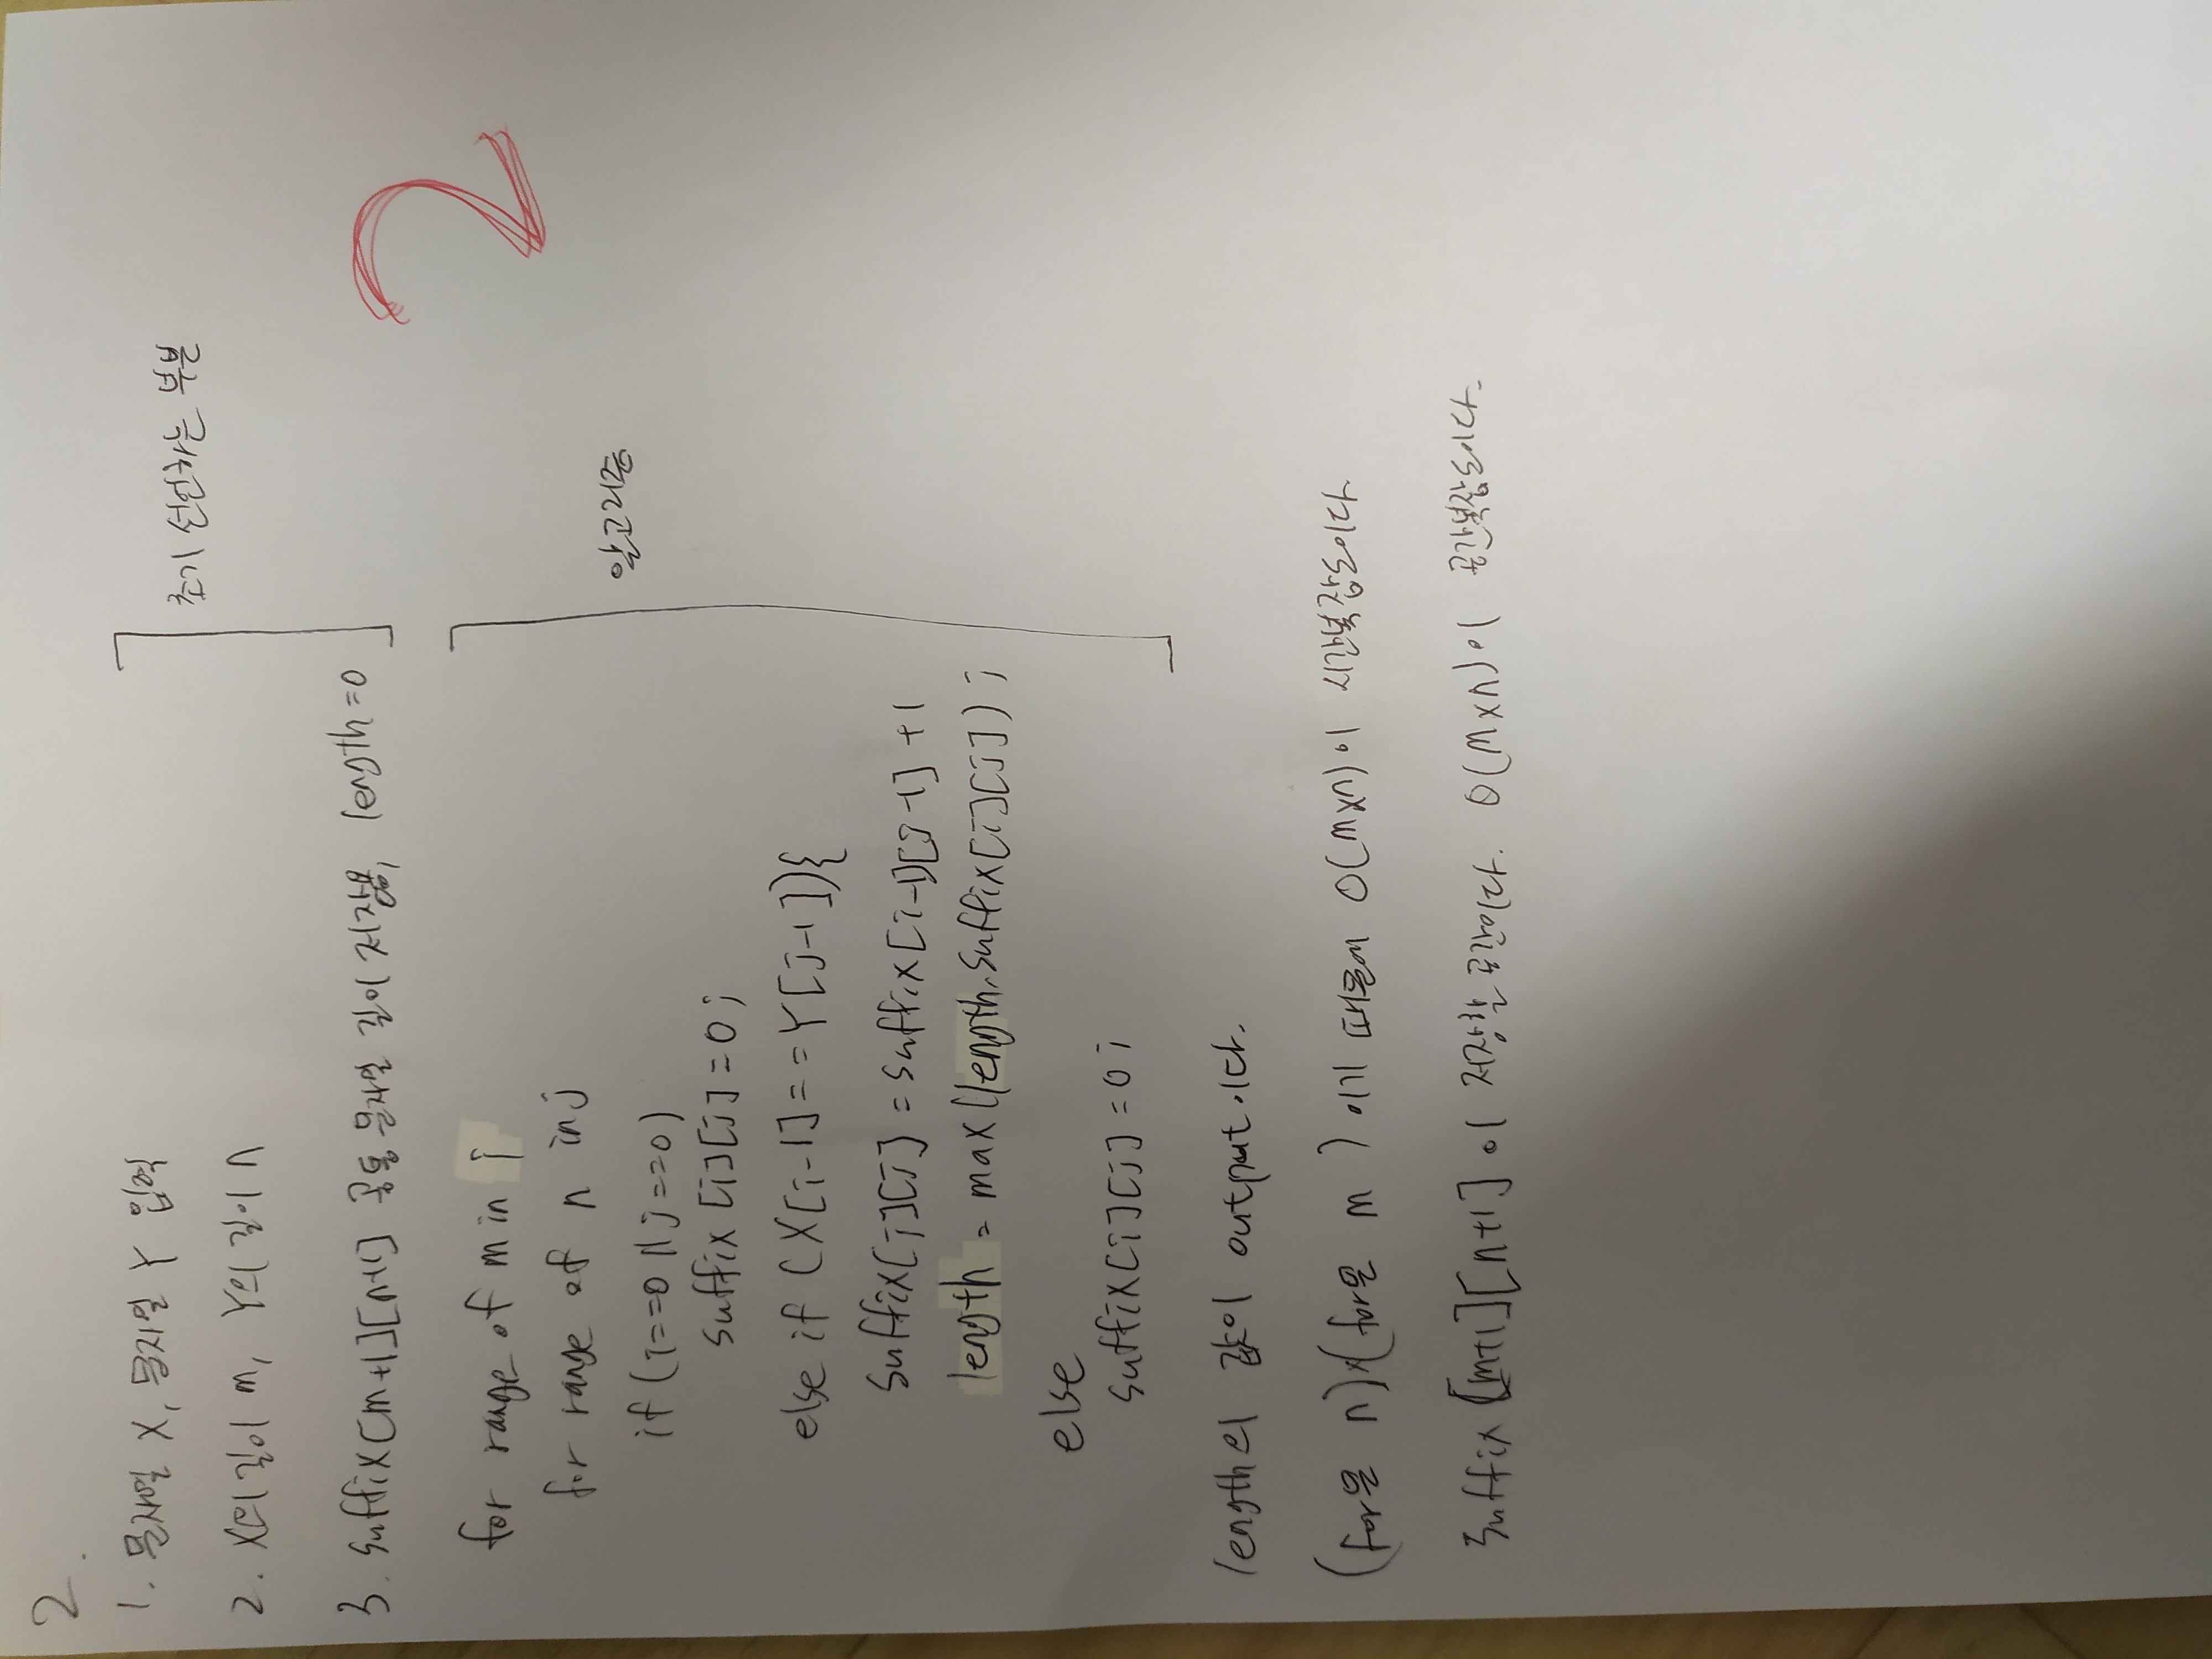 2.
1. 문자열 X, 문자열 Y 입력
2. X의 길이 m, Y의 길이 n
3. suffix[m+1][n+1] 공통 문자열 길이 저장용, length=0
초기 선언하는 부분
2
for range of m in i
for range of n in j
if (i==0 || j==0)
suffix [i][j]=0;
else if (X[i-1]==Y[j-1]){
suffix[i][j] = suffix[i-1][j-1] +1
length = max(length, suffix[i][j]);
else
suffix[i][j]=0;
알고리즘
length의 값이 output이다.
(for문 n)×(for문 m ) 이기 때문에 O(m×n)이 시간복잡도이다.
suffix [m+1][n+1] 이 저장할 공간이다. O(m×n)이 공간복잡도이다.